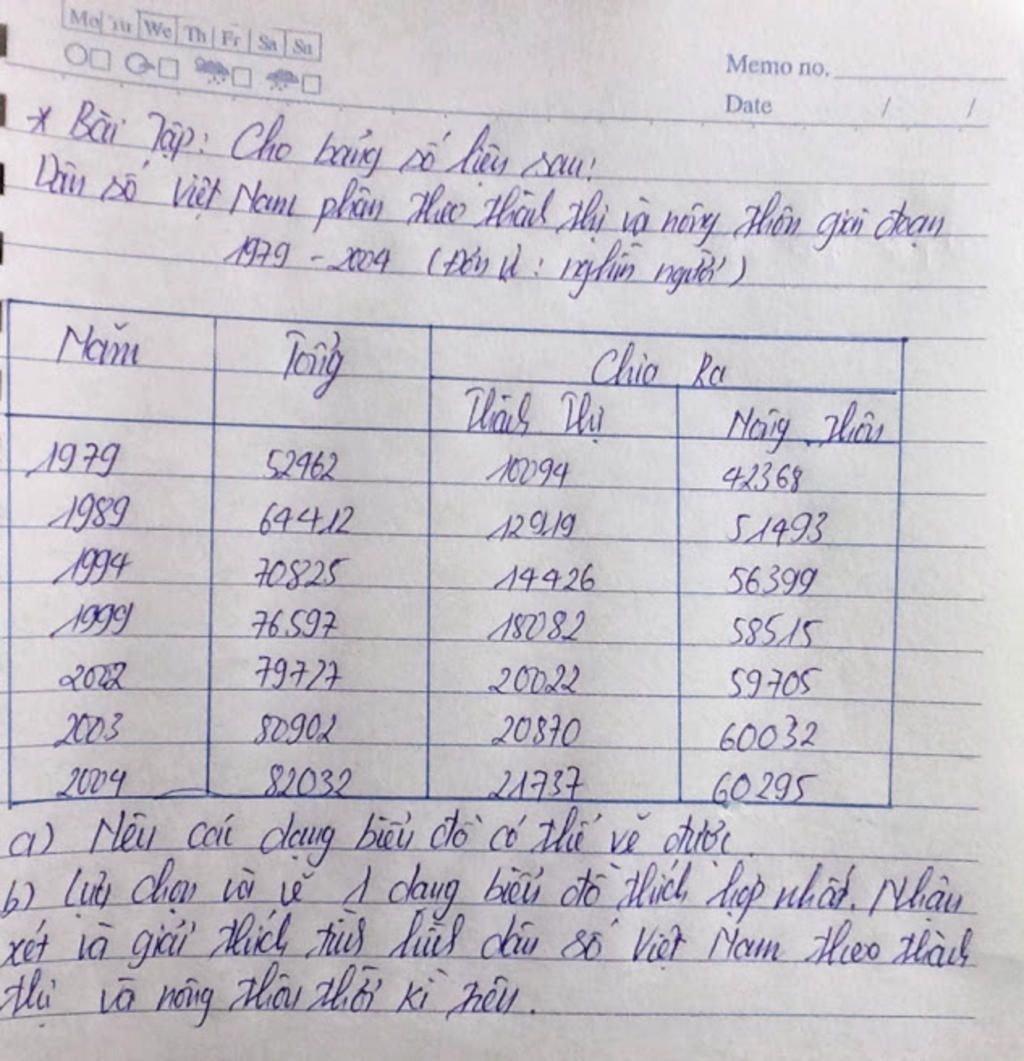 Mo Tu We Th Fr Sa Su
Memo no.
Date / /
* Bài Tập: Cho bảng số liệu sau:
Dân số Việt Nam phân theo thành thị và nông thôn giai đoạn
1979 - 2004 (Đơn vị: nghìn người)
Năm Tổng Chia Ra
Thành Thị Nông thôn
1979 52462 10094 42368
1989 64412 12919 51493
1994 70825 14426 56399
1999 76597 18082 58515
2002 79727 20022 59705
2003 80902 20870 60032
2004 82032 21737 60295
a) Nêu các dạng biểu đồ có thể vẽ được.
b) Lựa chọn và vẽ 1 dạng biểu đồ thích hợp nhất. Nhận
xét và giải thích tình hình dân số Việt Nam theo thành
thị và nông thôn thời kì trên.